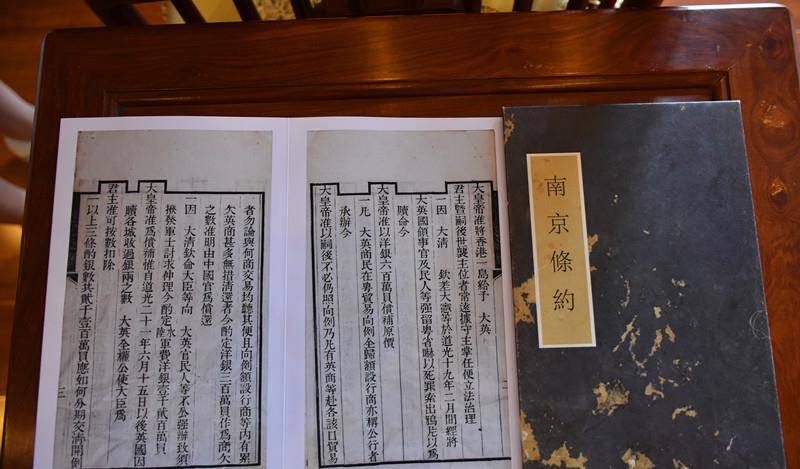 南京條約
大皇帝准將香港一島給予 大英
君主暨嗣後世襲主位者常遠據守主掌任便立法治理
一因 大清 欽差大憲等於道光十九年二月間經將
大英國領事官及民人等强留粵省嚇以死罪索出鴉片以爲
贖命今
大皇帝准以洋銀六百萬員償補原價
一凡 大英商民在粵貿易向例全歸額設行商亦稱公行者
承辦今
大皇帝准以嗣後不必仍照向例乃凡有英商等赴各該口貿易
者勿論與何商交易均聽其便且向例額設行商等內有累
欠英商甚多無措清還者今酌定洋銀三百萬員作爲商欠
之數准明由中國官爲償還
一因 大清欽命大臣等向 大英官民人等不公强辦致須
撥發軍士討求伸理今酌定水軍費洋銀壹千貳百萬員
大皇帝准爲償補惟自道光二十一年六月十五日以後英國因
贖各城收過銀兩之數 大英全權公使大臣爲
君主准可按數扣除
一以上三條酌銀數共貳千壹百萬員應如何分期交清開列
三